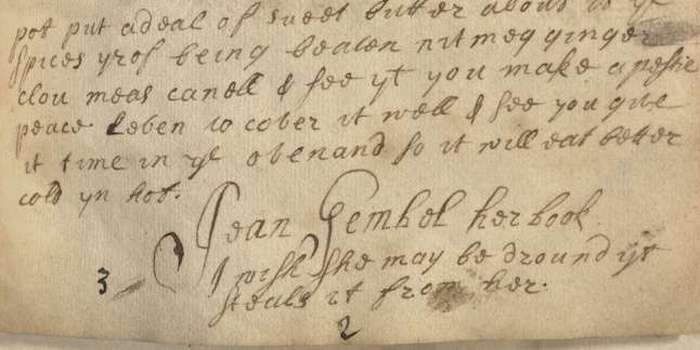 pot put a deal of sweet butter about it ye
spices yrof being beaten nitmeg ginger
clou meas canell & see yt you make a pestie
peace Leben to cober it well & see you give
it time in ye oben and so it will eat better
cold yn hot.
Jean Gembel her book
I wish she may be dround yt
steals it from her.
3
2